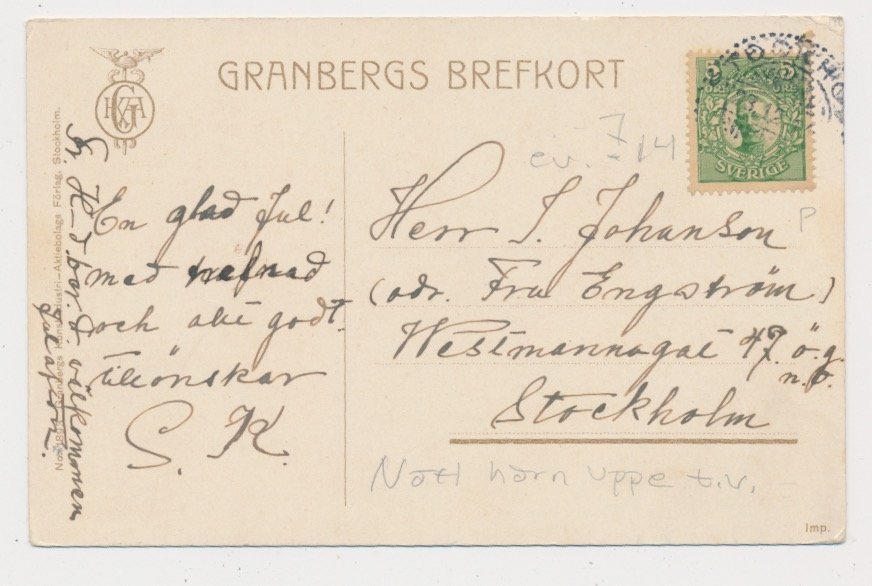 GRANBERGS BREFKORT
5 ÖRE 5 ÖRE
SVERIGE
ev. 7
-14
P
En glad Jul!
med trefnad
och allt godt.
tillönskar
S. K.
välkommen
julafton.
Granbergs Konstindustri-Aktiebolags Förlag, Stockholm.
Herr J. Johanson
(adr. Fru Engström)
Westmannagat 47. ö.g.
n.b.
Stockholm
Nött hörn uppe t.v.
Imp.